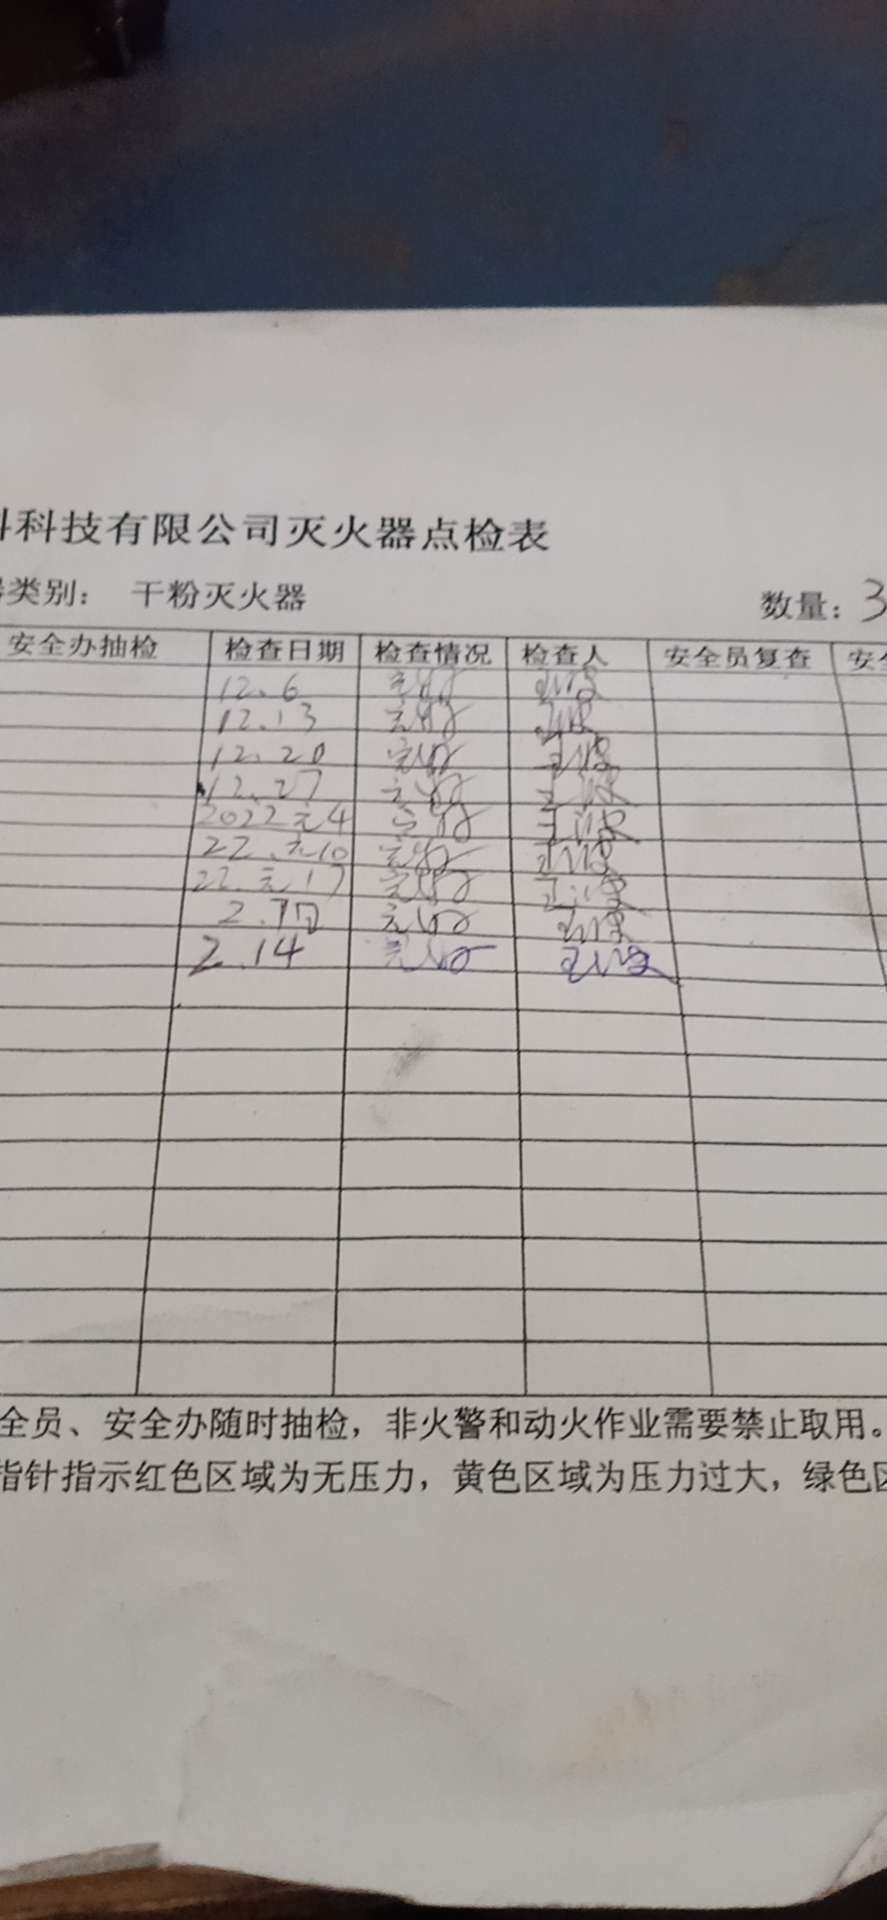 科技有限公司灭火器点检表
类别： 干粉灭火器 数量：3
安全办抽检 检查日期 检查情况 检查人 安全员复查 安全
12.6 完好
12.13 完好
12.20 完好
12.27 完好
2022元4 完好
22.元10 完好
22.元17 完好
2.7日 完好
2.14 完好
全员、安全办随时抽检，非火警和动火作业需要禁止取用。
指针指示红色区域为无压力，黄色区域为压力过大，绿色区